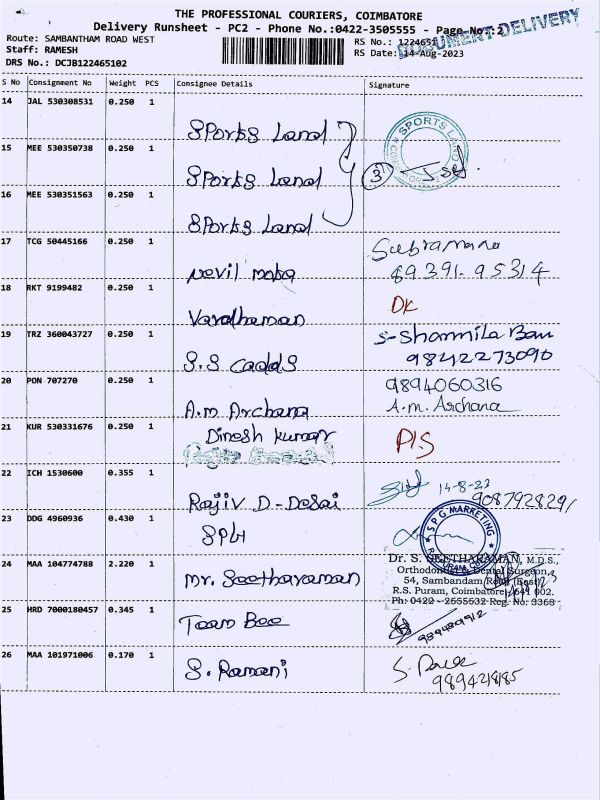 THE PROFESSIONAL COURIERS, COIMBATORE
Delivery Runsheet - PC2 - Phone No.:0422-3505555 - Page No.:2
DOCUMENT DELIVERY
Route: SAMBANTHAM ROAD WEST
RS No.: 1224651
Staff: RAMESH
RS Date: 14-Aug-2023
DRS No.: DCJB122465102
S No Consignment No Weight PCS Consignee Details Signature
14 JAL 530308531 0.250 1 Sports Land
15 MEE 530350738 0.250 1 Sports Land 3
SPORTS LAND
16 MEE 530351563 0.250 1 Sports Land
17 TCG 50445166 0.250 1 nevil moba
89391 95314
18 RKT 9199482 0.250 1 Vardhaman DK
19 TRZ 360043727 0.250 1 S.S Cadds S-Sharmila Banu
9842273090
20 PON 707270 0.250 1 A.m Archana 9894060316
A.m. Archana
21 KUR 530331676 0.250 1 Dinesh kumar P/S
22 ICH 1530600 0.355 1 Rajiv D-Desai 14-8-23
9087928291
23 DDG 4960936 0.430 1 SPG
SPG MARKETING
24 MAA 104774788 2.220 1 Mr. Seetharaman
Dr. S. SEETHARAMAN, M.D.S.,
Orthodontist & Dental Surgeon,
54, Sambandam Road (East),
R.S. Puram, Coimbatore - 641 002.
Ph: 0422 - 2555532 Reg. No: 3368
25 HRD 7000180457 0.345 1 Team Bee
26 MAA 101971006 0.170 1 S. Ramani
9894218185